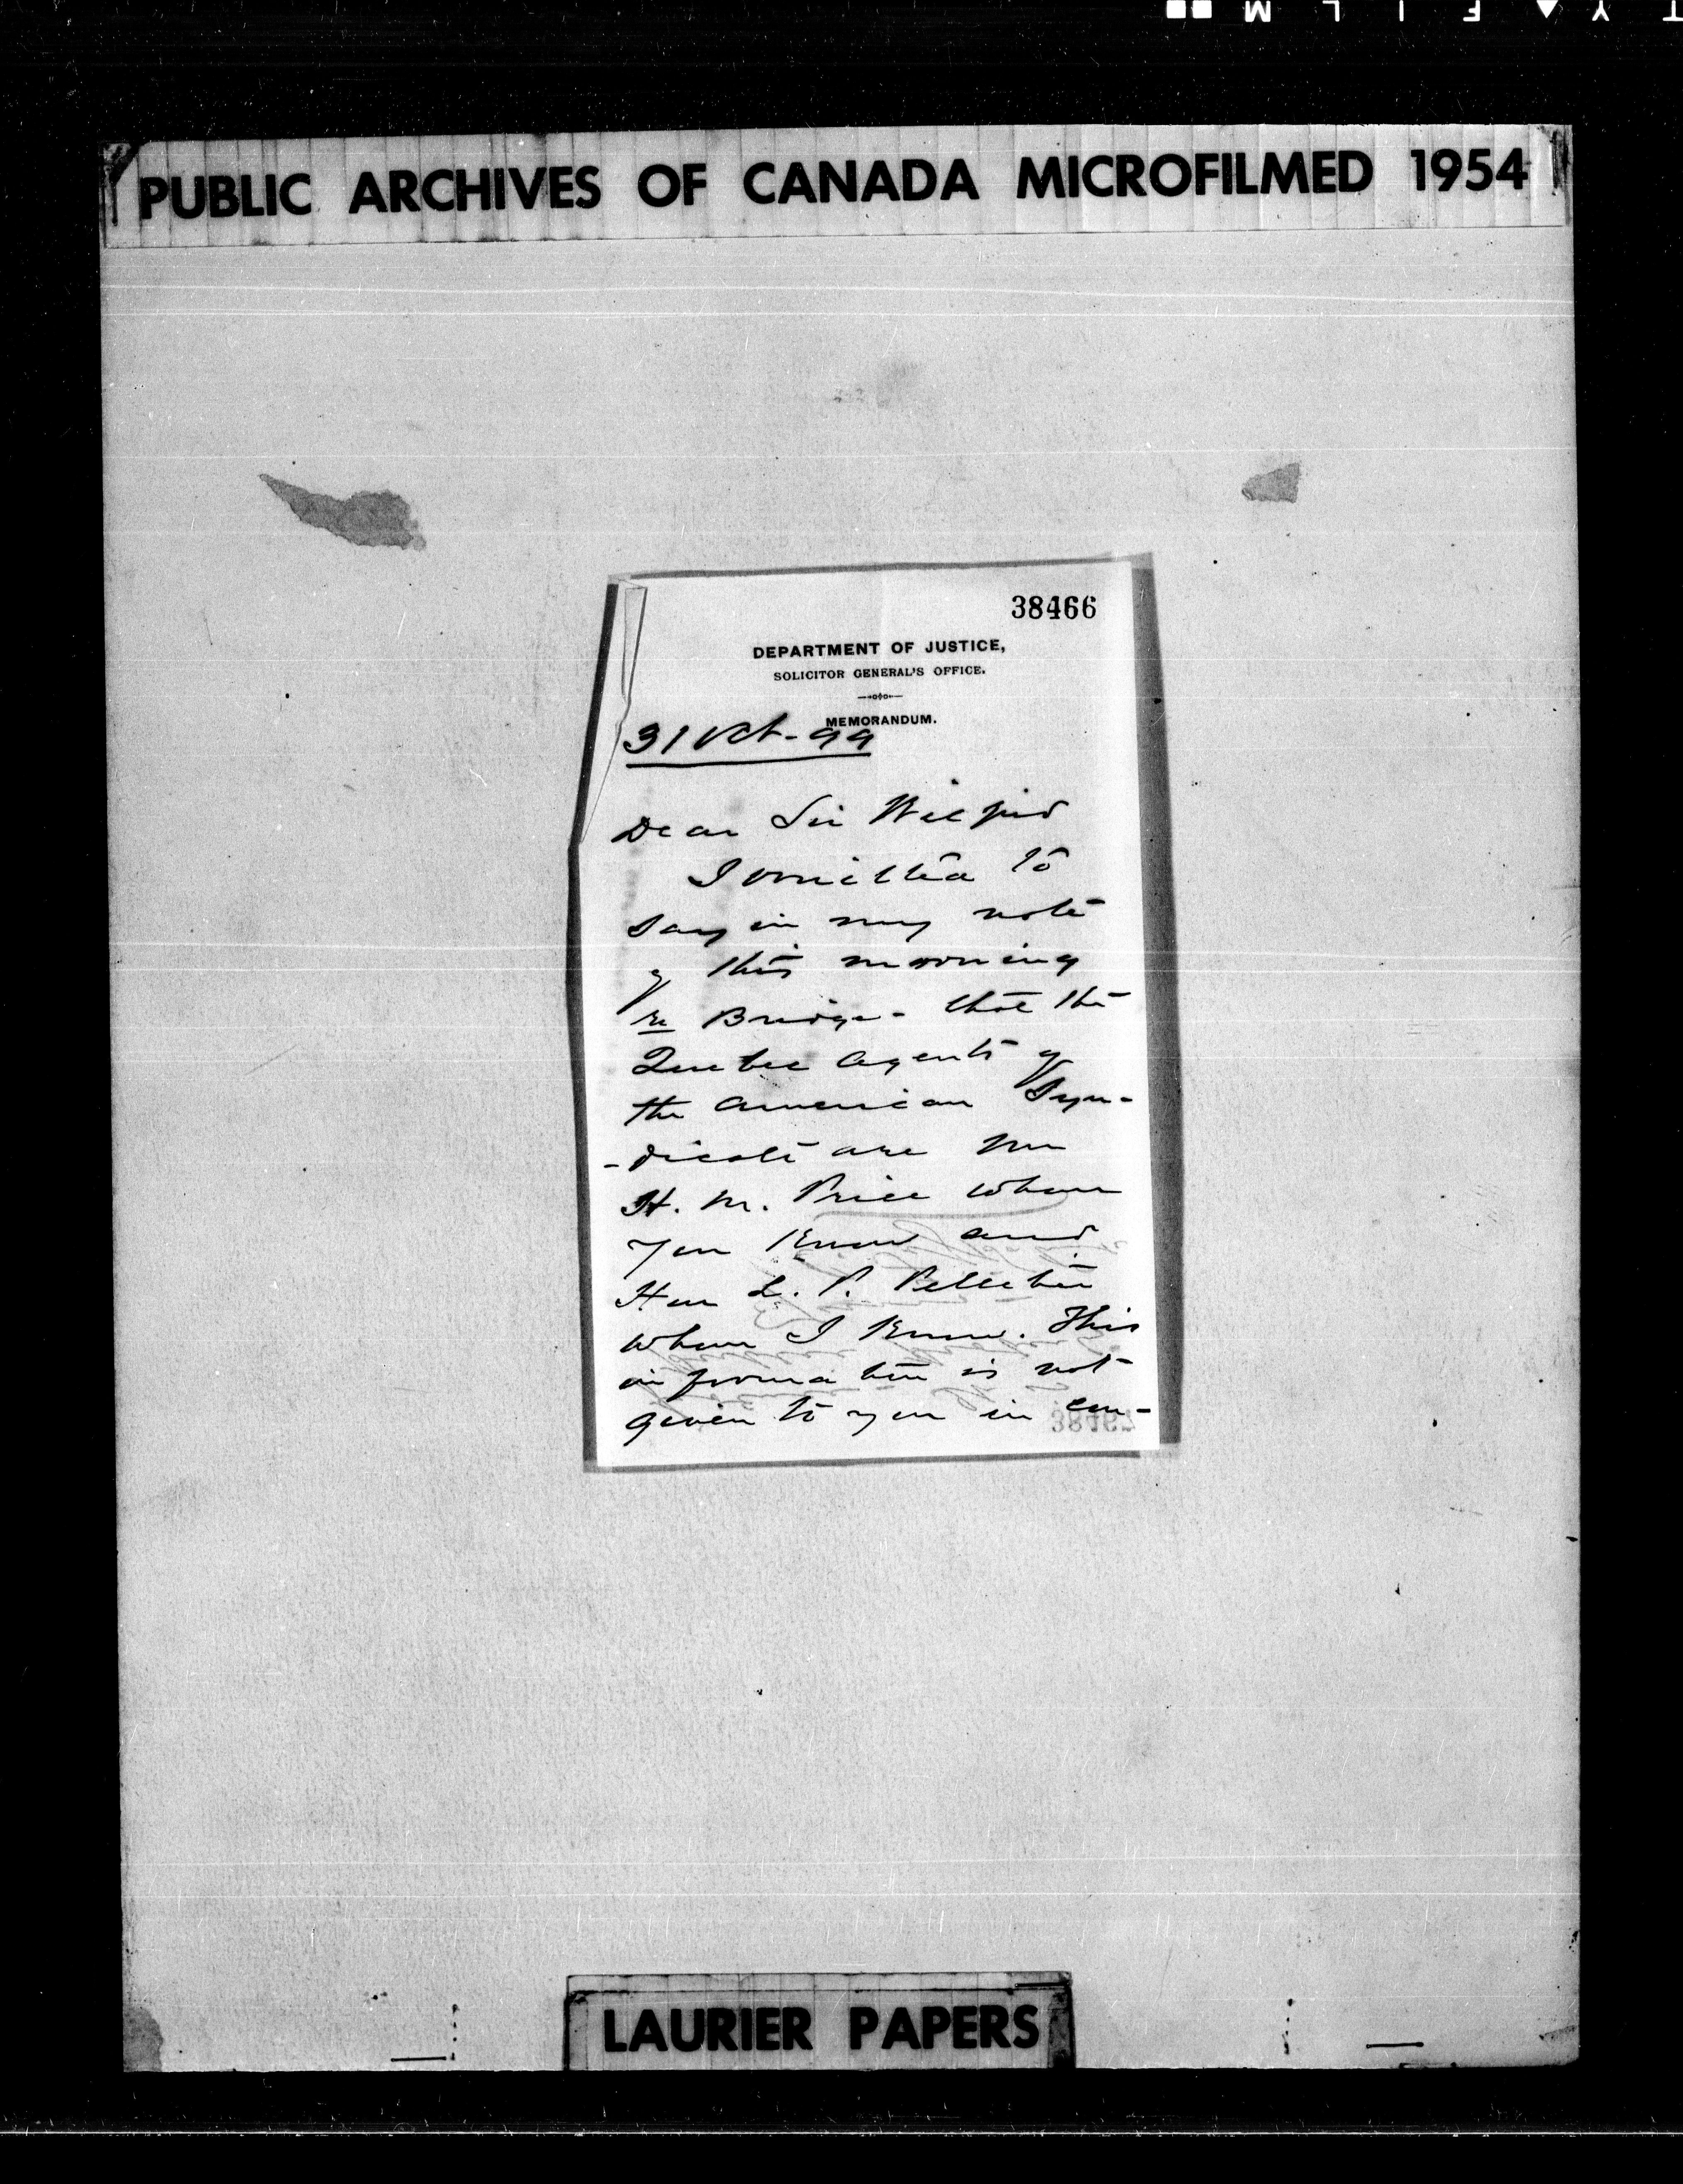 PUBLIC ARCHIVES OF CANADA MICROFILMED 1954
38466
DEPARTMENT OF JUSTICE,
SOLICITOR GENERAL'S OFFICE.
MEMORANDUM.
31 Oct - 99
Dear Sir Wilfrid
I omitted to
say in my note
of this morning
re Bridge - that the
Quebec agents of
the American Syn-
-dicate are Mr
H. M. Price whom
you know and
Hon L. P. Pelletier
whom I know. This
information is not
given to you in con-
LAURIER PAPERS